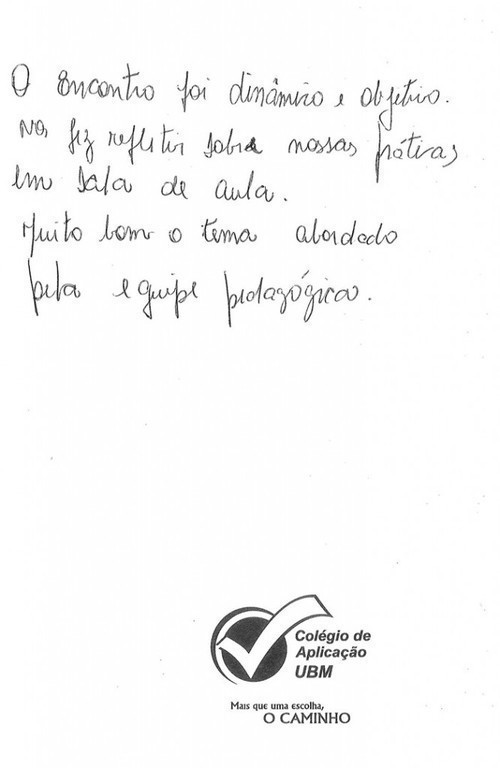 O encontro foi dinâmico e objetivo.
Nos fez refletir sobre nossas práticas
em sala de aula.
Muito bom o tema abordado
pela equipe pedagógica.
Colégio de
Aplicação
UBM
Mais que uma escolha,
O CAMINHO